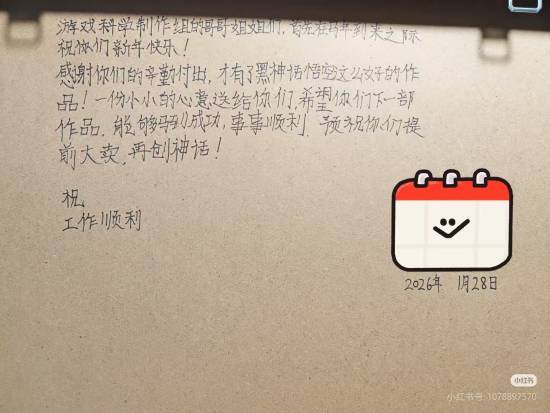 游戏科学制作组的哥哥姐姐们，首先在马年到来之际
祝你们新年快乐！
感谢你们的辛勤付出，才有了黑神话悟空这么好的作
品！一份小小的心意送给你们，希望你们下一部
作品，能够马到成功，事事顺利，预祝你们提
前大卖，再创神话！
祝
工作顺利
2026年 1月28日
小红书
小红书号 1078897570